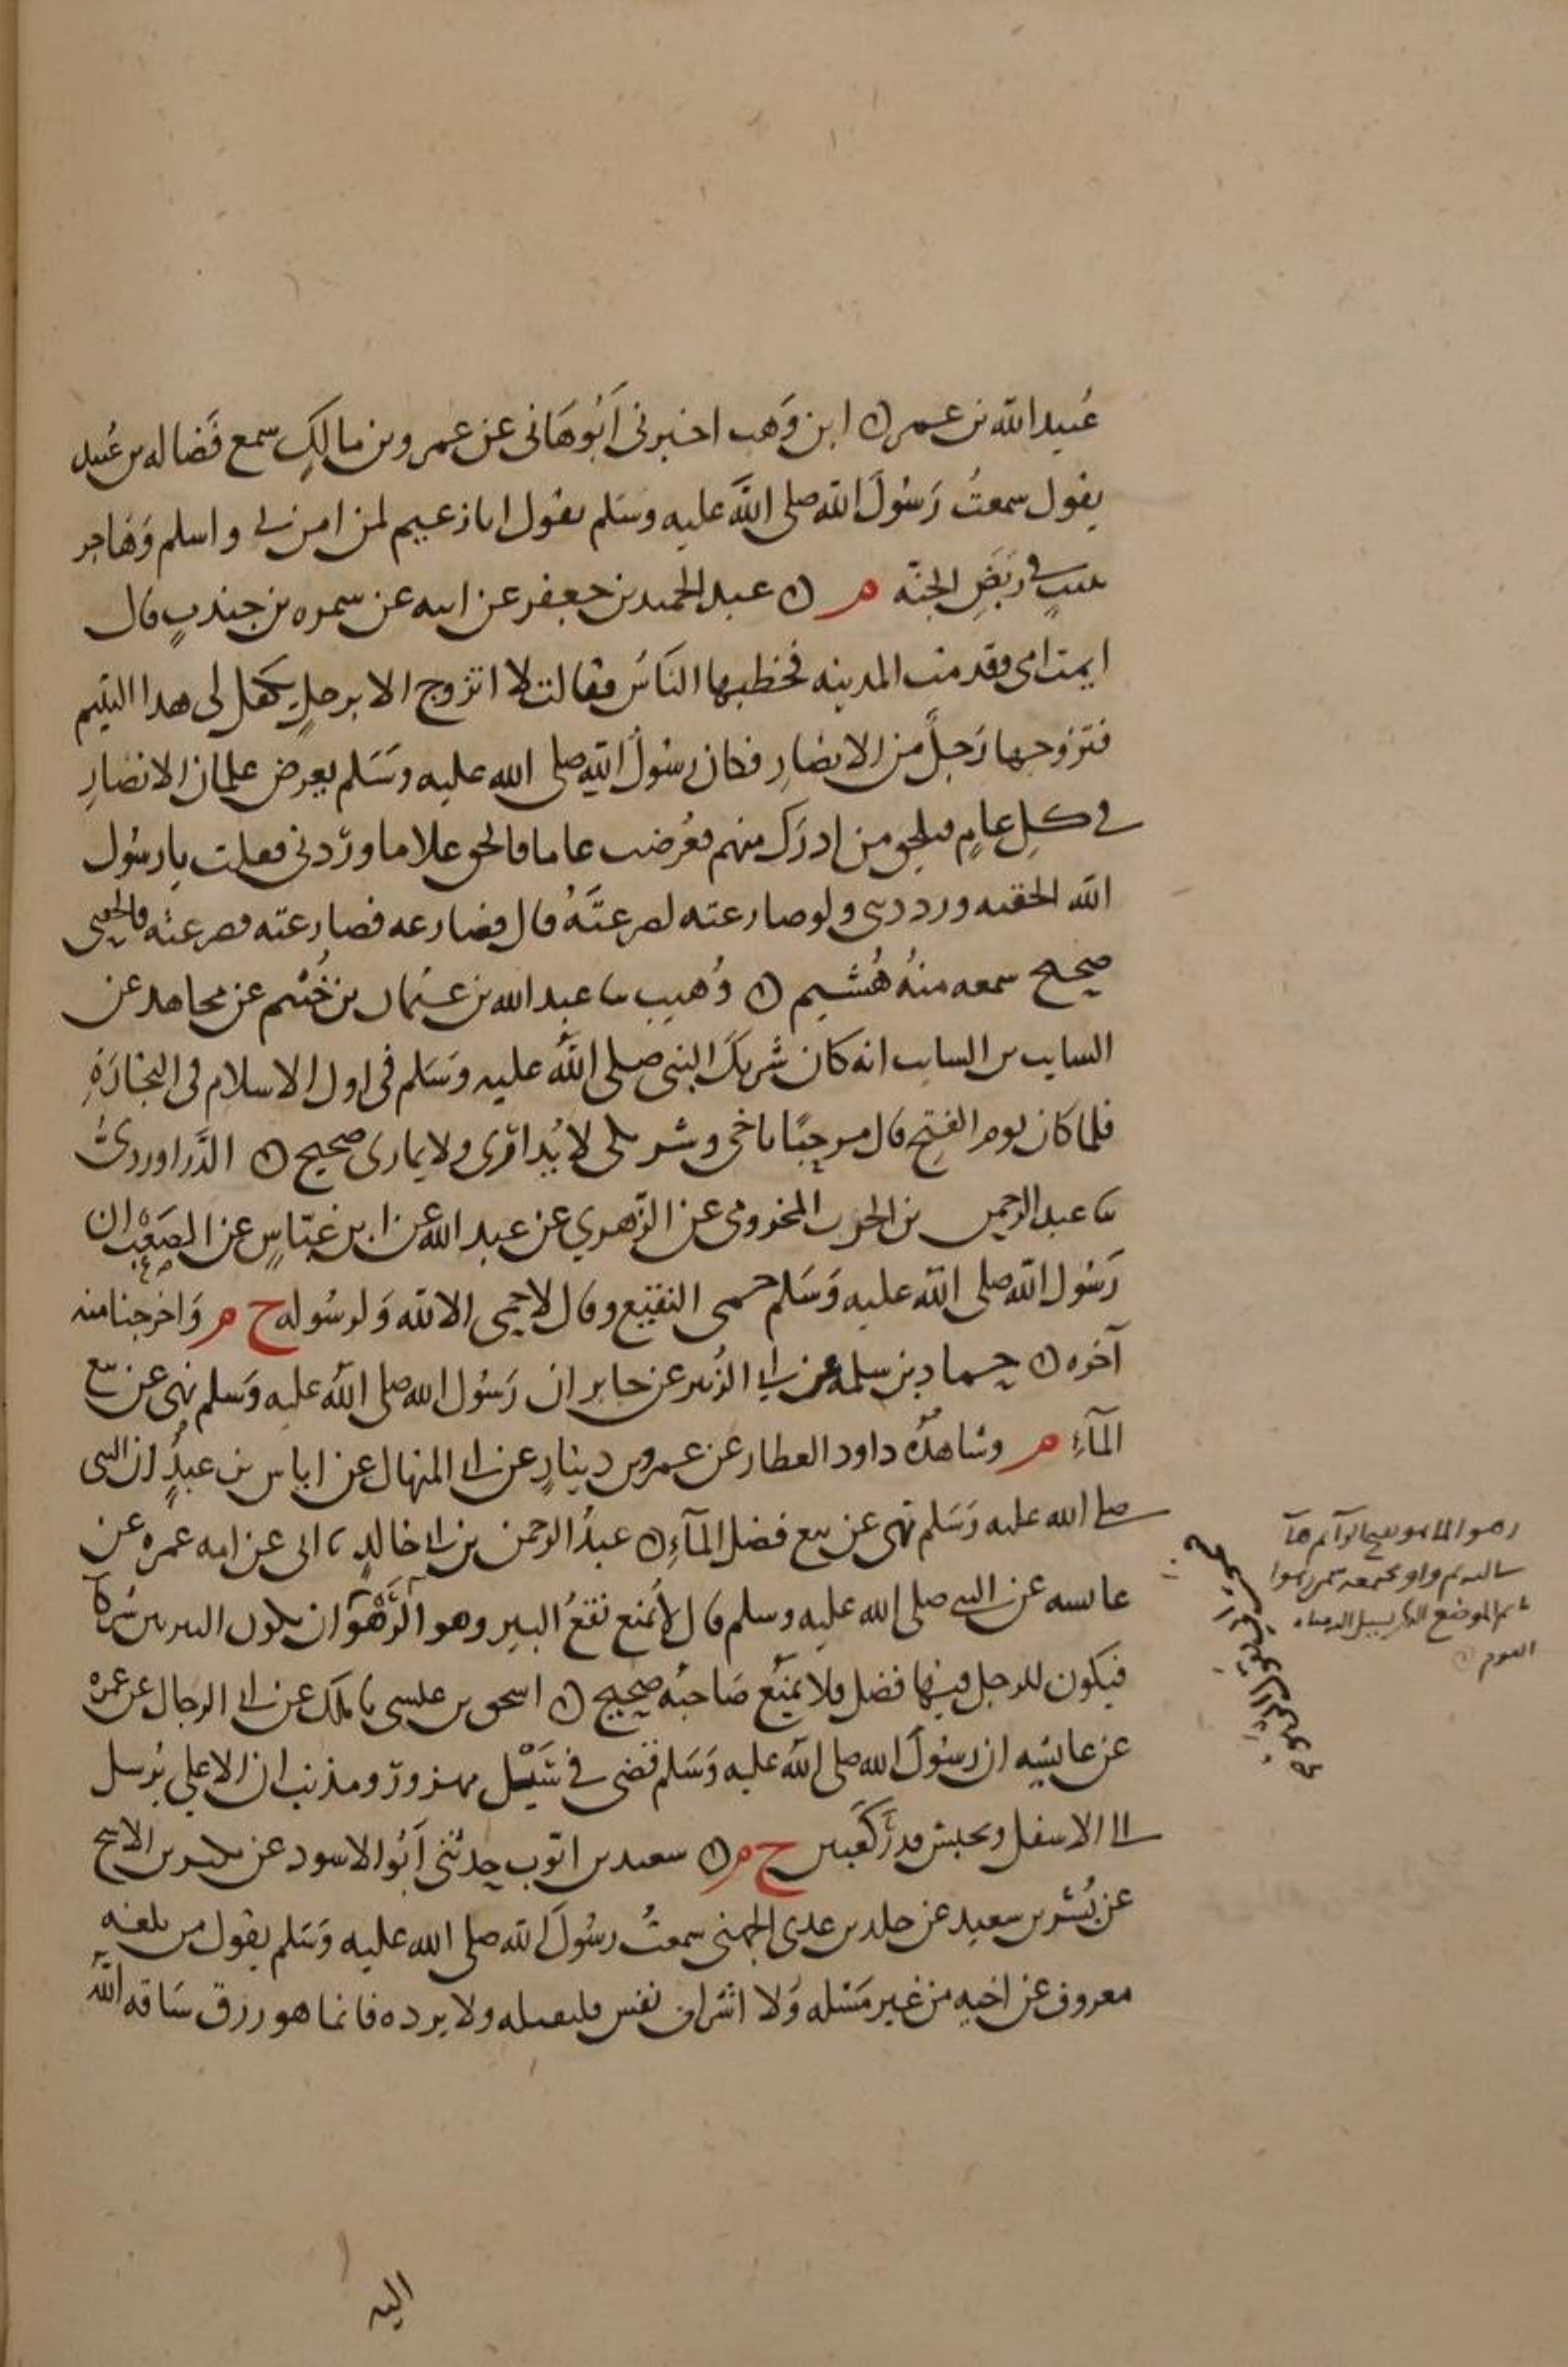 عُبيد الله بن عمر ابن وَهب اخبرنى اَبُو هَانى عن عمرو بن مالكٍ سمع فَضاله بن عُبيد
يقول سمعتُ رَسُولَ الله صلى الله عليه وسَلم يقول انا زعيم لمن امن بى واسلم وَهَاجر
ببيتٍ فى رَبَضِ الجنّه م عبد الحميد بن جعفر عن ابيه عن سمره بن جندبٍ قال
ايمت امى وقدمت المدينه فخطبها النَاسُ فقالت لا اتزوج الا برجلٍ يكفل لى هذا اليتيم
فتزوجها رَجلٌ من الانصارِ فكان رسُولُ الله صلى الله عليه وسَلم يعرض غلمان الانصارِ
فى كلِ عامٍ فيلحق من ادرَك منهم فعُرضت عاما فالحق غلاما وردّنى فقلت يا رسُول
الله الحقته ورددتنى ولو صارعته لصرعتَهُ قال فصارعه فصارعته فصرعتُه فالحقنى
صحيح سمعه منهُ هُشَيم وُهيب ثنا عبد الله بن عثمان بن خُثيم عن مجاهد عن
السايب بن السايب انه كان شريكَ النبى صلى اللهُ عليه وسَلم فى اول الاسلام فى التجارَةِ
فلما كان يوم الفتحِ قال مرحبًا باخى وشريكى لا يُدارى ولا يمارى صحيح الدَّراوردىُّ
ثنا عبد الرحمن بن الحرث المخزومى عن الزهرى عن عبيد الله عن ابن عبّاسٍ عن الصَعْب ان
رَسُول الله صلى الله عليه وَسَلم حمى النقيع وقال لا حمى الا لله وَلرسُوله خ م وَاخرجنا منه
آخره حماد بن سلمه عن ابى الزُبير عن جابر ان رَسُول الله صلى الله عليه وَسَلم نهى عن بيع
المآءِ م وشاهدُه داود العطار عن عمرو بن دينارٍ عن ابى المنهال عن اياس بن عبدٍ ان النبى
صلى الله عليه وَسَلم نهى عن بيع فضل المآءِ عبدُ الرحمن بن ابى خالدٍ ثنا ابى عن امه عمره عن
عايشه عن النبى صلى الله عليه وسلم قال لا يُمنع نقعُ البير وهو الرَّهْو ان يكون البير بين شركآ
فيكون للرجل فيها فضل فلا يمنع صَاحبُه صحيح اسحق بن عيسى ثنا ملك عن ابى الرجال عن عمره
عن عايشه ان رسُولَ الله صلى الله عليه وَسَلم قضى فى سَيْل مهزورٍ ومذينب ان الاعلى يُرسل
الى الاسفل ويحبس قدرَ كَعبين خ م سعيد بن ايّوب حدثنى اَبُو الاسود عن بكير بن الاشج
عن بُسْر بن سعيد عن خلد بن عدى الجهنى سمعتُ رسُولَ الله صلى الله عليه وَسَلم يقول من بلغه
معروف عن اخيه من غير مَسْله وَلا اشراف نفس فليقبله ولا يرده فانما هو رزق سَاقه اللهُ
اليه